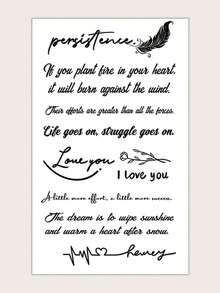 persistence.
If you plant fire in your heart,
it will burn against the wind.
Their efforts are greater than all the forces.
Life goes on, struggle goes on.
Love you
I love you
A little more effort, a little more success.
The dream is to wipe sunshine
and warm a heart after snow.